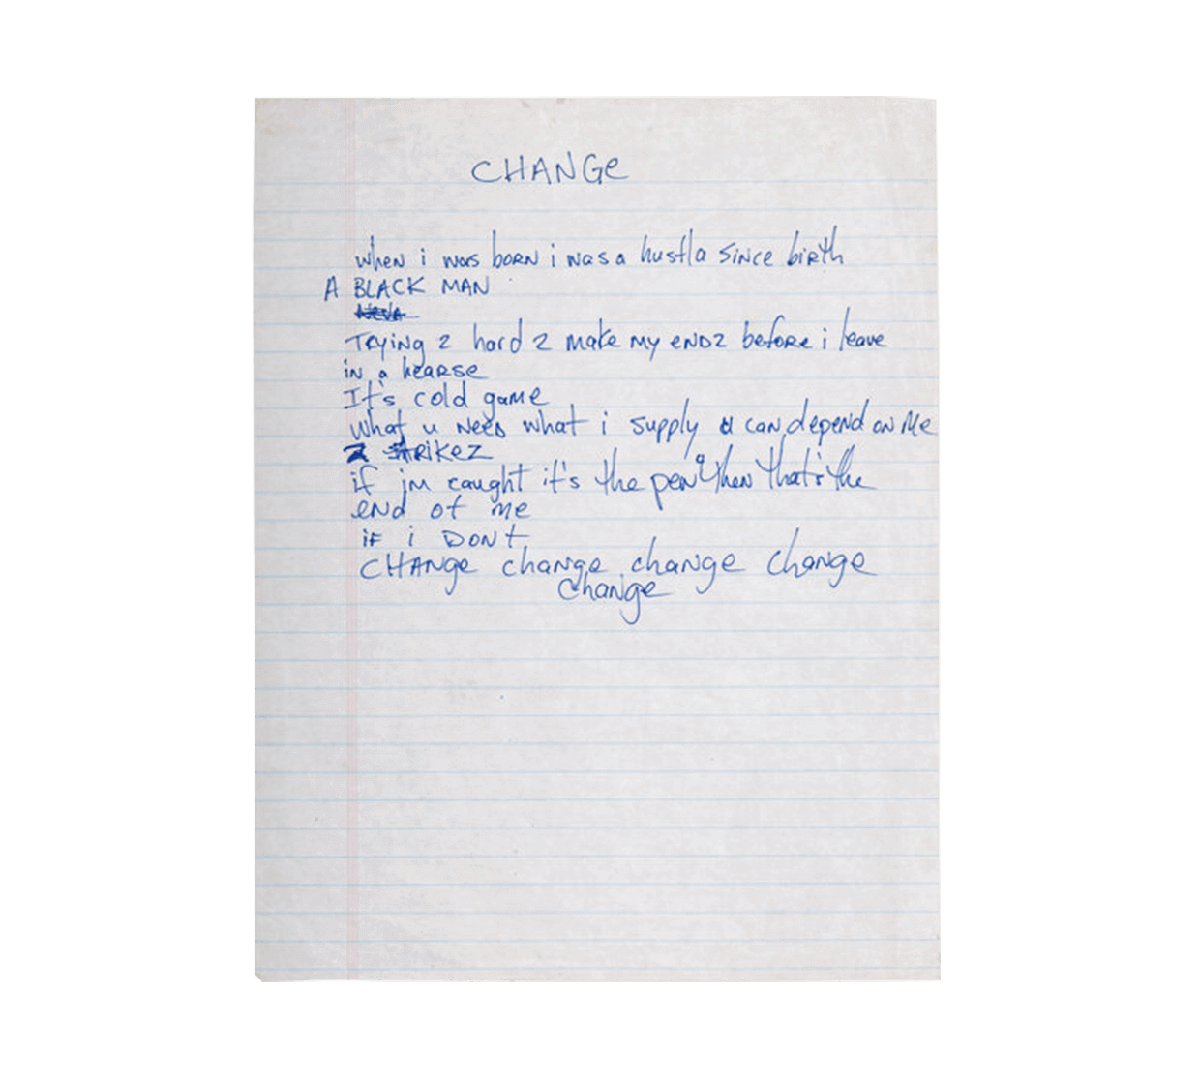 CHANGe
when i was born i was a hustla since birth
A BLACK MAN
Trying 2 hard 2 make my endz before i leave
in a hearse
It's cold game
what u need what i supply u can depend on me
2 strikez
if im caught it's the pen then that's the
end of me
if i DONt
CHANge change change change
change